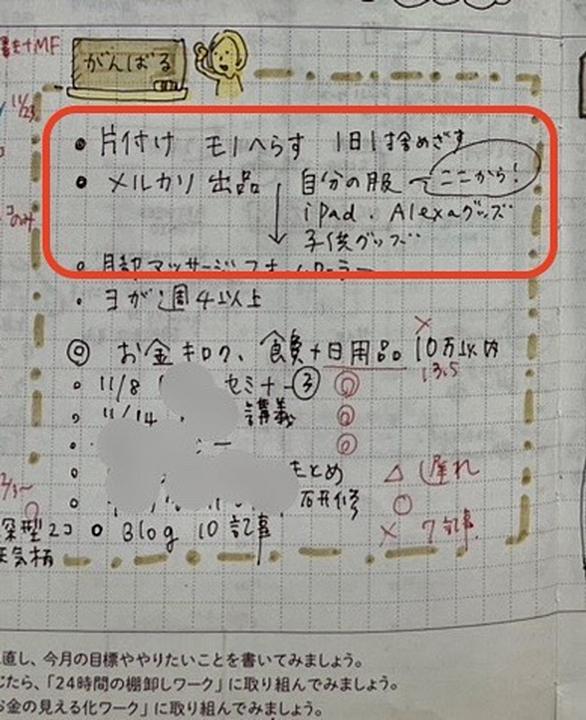 がんばる
11/23
・片付け モノへらす 1日1捨めざす
・メルカリ 出品 ↓ 自分の服 ここから!
iPad、Alexaグッズ
子供グッズ
マッサージ
・ヨガ週4以上
◎ お金キロク、食費+日用品 10万以内 ×
13.5
11/8 セミナー③ ◎
11/14 講義 ◎
◎
まとめ △ 遅れ
研修 ○
深型2コ Blog 10記事 × 7記事
天気柄
直し、今月の目標ややりたいことを書いてみましょう。
じたら、「24時間の棚卸しワーク」に取り組んでみましょう。
お金の見える化ワーク」に取り組んでみましょう。